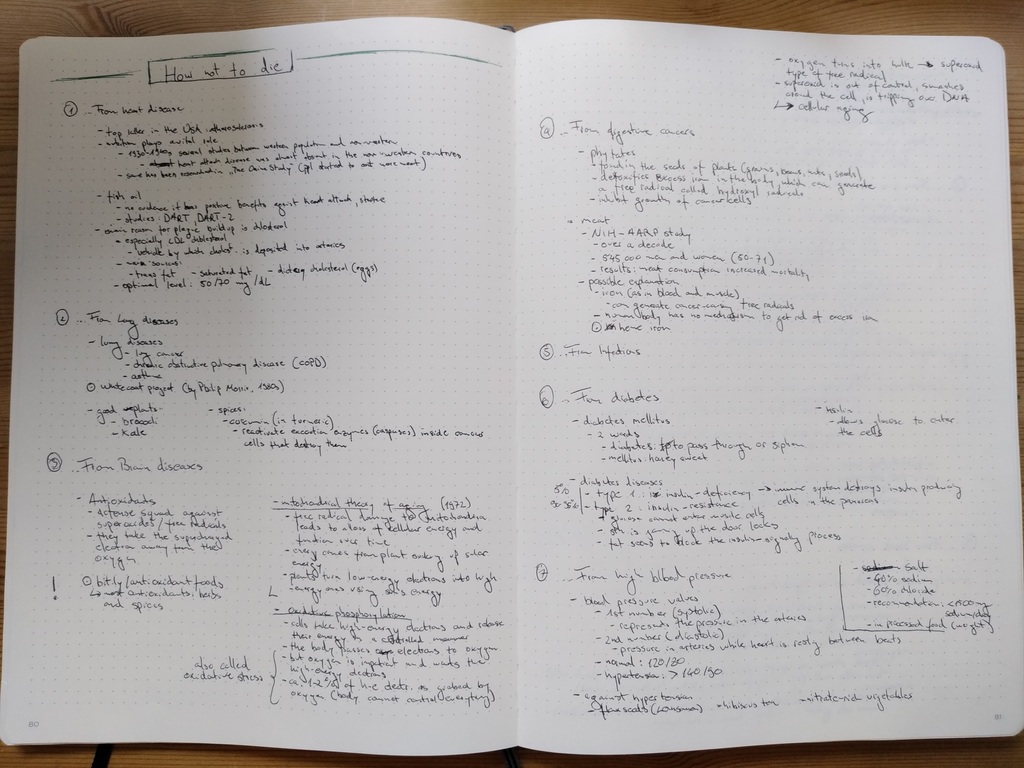 How not to die
① ... From heart disease
- top killer in the USA: atherosclerosis
- nutrition plays a vital role
- 1930-1960s several studies between western population and non-western
- heart attack disease was almost absent in the non-western countries
- same has been researched in "The China Study" (ppl started to eat more meat)
- fish oil
- no evidence it has positive benefits against heart attack, stroke
- studies: DART, DART-2
- reason for plaque buildup is cholesterol
- especially LDL cholesterol
- vehicle by which cholest. is deposited into arteries
- sources:
- trans fat - saturated fat - dietary cholesterol (eggs)
- optimal level: 50/70 mg/dL
② ... From Lung diseases
- lung diseases
- lung cancer
- chronic obstructive pulmonary disease (COPD)
- asthma
⊙ Whitecoat project (by Philip Morris, 1980s)
- good plants:
- broccoli
- kale
- spices:
- curcumin (in turmeric)
- reactivate execution enzymes (caspases) inside cancer
cells that destroy them
③ ... From Brain diseases
- Antioxidants
- defense squad against
superoxides/free radicals
- they take the supercharged
electron away from the
oxygen
! ⊙ bit.ly/antioxidantfoods
↳ most antioxidants: herbs
and spices
- mitochondrial theory of aging (1972)
- free radical damage to mitochondria
leads to a loss of cellular energy and
function over time
- energy comes from plant making of solar
energy
- plants turn low-energy electrons into high
energy ones using sun's energy
- oxidative phosphorylation
- cells take high-energy electrons and release
their energy in a controlled manner
- the body passes electrons to oxygen
- but oxygen is impatient and wants the
high-energy electrons
- ca. 1-2% of h-e electr. is grabed by
oxygen (body cannot control everything)
also called
oxidative stress
80
- oxygen turns into bulk → superoxid
type of free radical
- superoxid is out of control, smashes
around the cell, is tripping over DNA
↳ cellular aging
④ ... From digestive cancers
- phytates
- found in the seeds of plants (grains, beans, nuts, seeds)
- detoxifies excess iron in the body, which can generate
a free radical called hydroxyl radicals
- inhibit growth of cancer cells
- meat
- NIH-AARP study
- over a decade
- 545.000 men and women (50-71)
- results: meat consumption increased mortality
- possible explanation
- iron (as in blood and muscle)
- can generate cancer-causing free radicals
- human body has no mechanism to get rid of excess iron
⊙ heme iron
⑤ ... From Infections
⑥ ... From diabetes
- diabetes mellitus
- 2 words
- diabetes: to pass through or siphon
- mellitus: honey sweet
- insulin
- allows glucose to enter
the cells
- diabetes diseases
5% - type 1: insulin-deficiency → immune system destroys insulin producing
cells in the pancreas
90-95% - type 2: insulin-resistance
- glucose cannot enter muscle cells
- sth is gumming up the door locks
- fat seems to block the insulin-signaling process
⑦ ... From high blood pressure
- blood pressure valves
- 1st number (systolic)
- represents the pressure in the arteries
- 2nd number (diastolic)
- pressure in arteries while heart is resting between beats
- normal: 120/80
- hypertension: > 140/90
- salt
- 40% sodium
- 60% chloride
- recommendation: <1500mg
sodium/day
- in processed food (weight)
- against hypertension
- flaxseeds - hibiscus tea - nitrate-rich vegetables
81